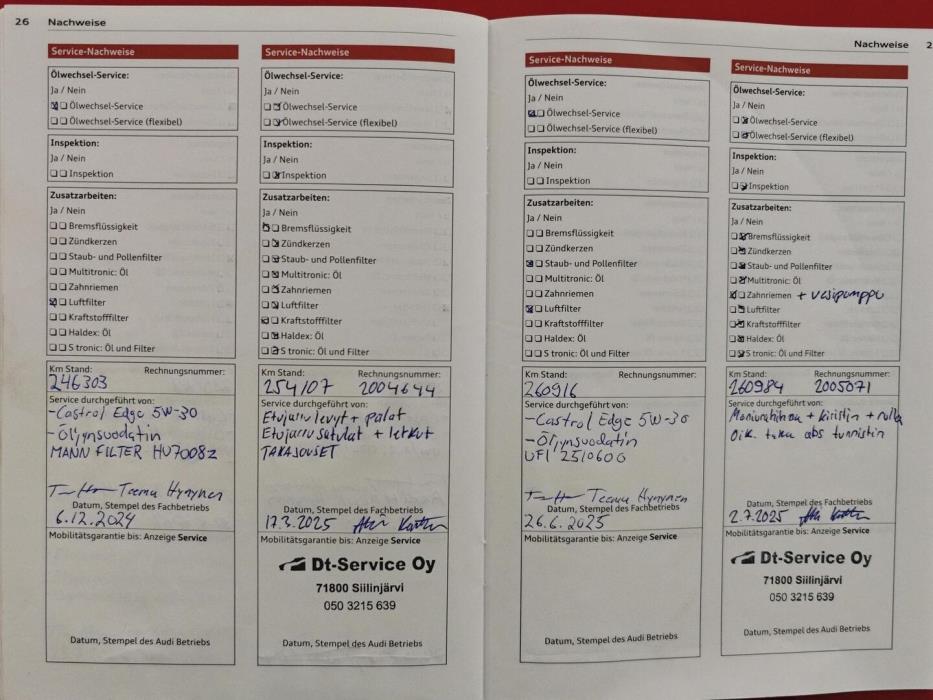 26 Nachweise
Service-Nachweise
Ölwechsel-Service:
Ja / Nein
Ölwechsel-Service
Ölwechsel-Service (flexibel)
Inspektion:
Ja / Nein
Inspektion
Zusatzarbeiten:
Ja / Nein
Bremsflüssigkeit
Zündkerzen
Staub- und Pollenfilter
Multitronic: Öl
Zahnriemen
Luftfilter
Kraftstofffilter
Haldex: Öl
S tronic: Öl und Filter
Km Stand: Rechnungsnummer:
246303
Service durchgeführt von:
-Castrol Edge 5W-30
-Öljynsuodatin
MANN FILTER HU7008z
Teemu Hynynen
Datum, Stempel des Fachbetriebs
6.12.2024
Mobilitätsgarantie bis: Anzeige Service
Datum, Stempel des Audi Betriebs
Service-Nachweise
Ölwechsel-Service:
Ja / Nein
Ölwechsel-Service
Ölwechsel-Service (flexibel)
Inspektion:
Ja / Nein
Inspektion
Zusatzarbeiten:
Ja / Nein
Bremsflüssigkeit
Zündkerzen
Staub- und Pollenfilter
Multitronic: Öl
Zahnriemen
Luftfilter
Kraftstofffilter
Haldex: Öl
S tronic: Öl und Filter
Km Stand: Rechnungsnummer:
254107 2004644
Service durchgeführt von:
Etujarru levyt + palat
Etujarru satulat + letkut
TAKAJOUSET
Datum, Stempel des Fachbetriebs
17.3.2025
Mobilitätsgarantie bis: Anzeige Service
Dt-Service Oy
71800 Siilinjärvi
050 3215 639
Datum, Stempel des Audi Betriebs
Nachweise 2
Service-Nachweise
Ölwechsel-Service:
Ja / Nein
Ölwechsel-Service
Ölwechsel-Service (flexibel)
Inspektion:
Ja / Nein
Inspektion
Zusatzarbeiten:
Ja / Nein
Bremsflüssigkeit
Zündkerzen
Staub- und Pollenfilter
Multitronic: Öl
Zahnriemen
Luftfilter
Kraftstofffilter
Haldex: Öl
S tronic: Öl und Filter
Km Stand: Rechnungsnummer:
260916
Service durchgeführt von:
-Castrol Edge 5W-30
-Öljynsuodatin
UFI 2510600
Teemu Hynynen
Datum, Stempel des Fachbetriebs
26.6.2025
Mobilitätsgarantie bis: Anzeige Service
Datum, Stempel des Audi Betriebs
Service-Nachweise
Ölwechsel-Service:
Ja / Nein
Ölwechsel-Service
Ölwechsel-Service (flexibel)
Inspektion:
Ja / Nein
Inspektion
Zusatzarbeiten:
Ja / Nein
Bremsflüssigkeit
Zündkerzen
Staub- und Pollenfilter
Multitronic: Öl
Zahnriemen + vesipumppu
Luftfilter
Kraftstofffilter
Haldex: Öl
S tronic: Öl und Filter
Km Stand: Rechnungsnummer:
260984 2005071
Service durchgeführt von:
Moniurahihna + kiristin + rulla
Oik. taka abs tunnistin
Datum, Stempel des Fachbetriebs
2.7.2025
Mobilitätsgarantie bis: Anzeige Service
Dt-Service Oy
71800 Siilinjärvi
050 3215 639
Datum, Stempel des Audi Betriebs